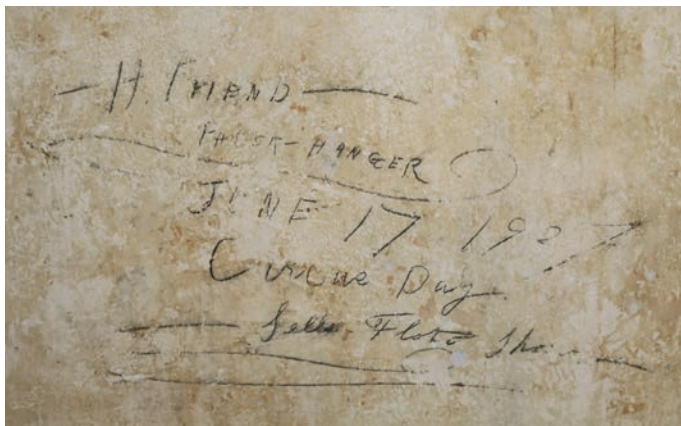 H. FRIEND
PAPER-HANGER
JUNE 17 1927
Circus Day
Sells Floto Show